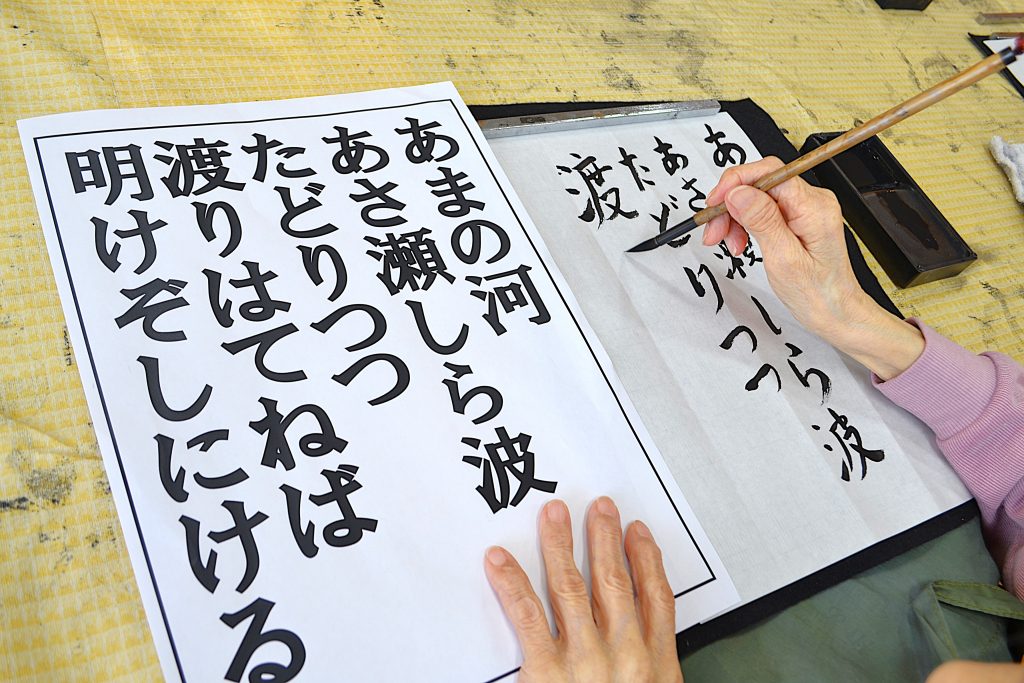 あまの河
あさ瀬しら波
たどりつつ
渡りはてねば
明けぞしにける
あ
あさ瀬しら波
たどりつつ
渡